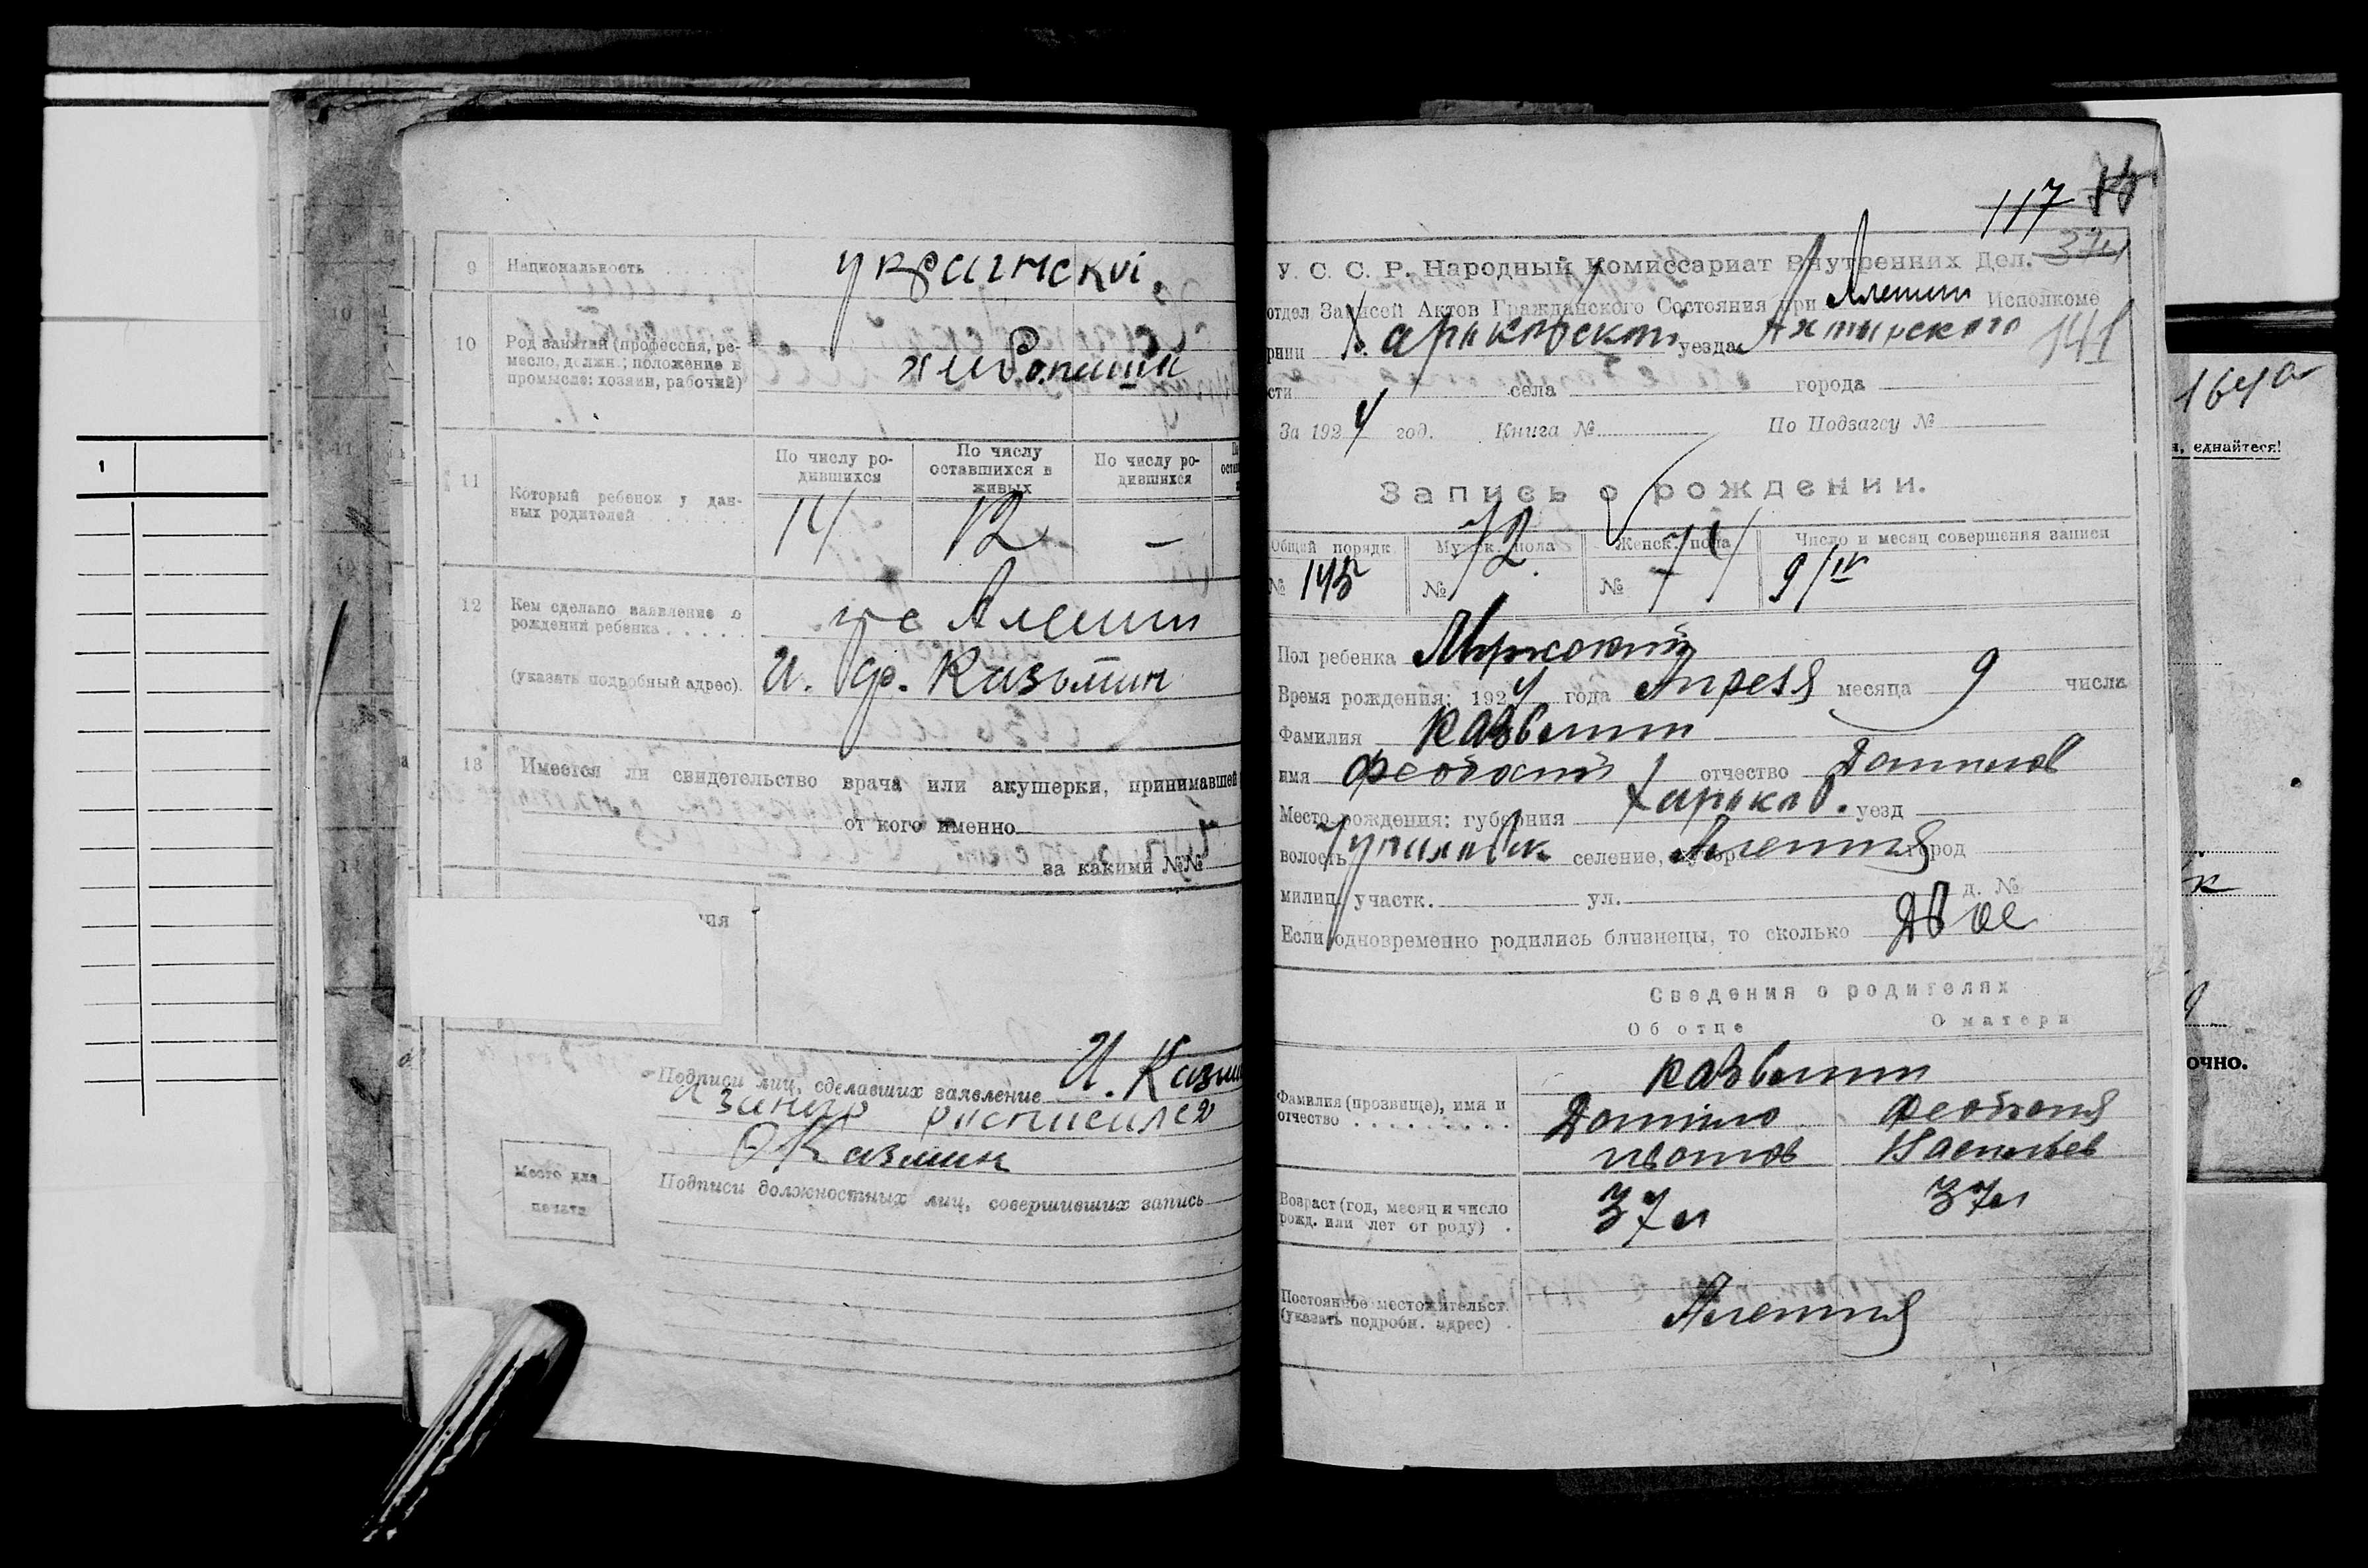 1
9 Национальность
украинскиі
10 Род занятий (профессия, ре-
месло, должн.; положение в
промысле: хозяин, рабочий)
11 Который ребенок у дан-
ных родителей
По числу ро-
дившихся
По числу
оставшихся в
живых
По числу ро-
дившихся
14 12 —
12 Кем сделано заявление о
рождении ребенка
(указать подробный адрес)
гр с Алешни
И. Ф. Казьмин
13 Имеется ли свидетельство врача или акушерки, принимавшей
от кого именно
за какими №№
Подписи лиц, сделавших заявление И. Казьм
расписался
Казмин
Подписи должностных лиц, совершивших запись
Место для
печати
117
37л
У. С. С. Р. Народный Комиссариат Внутренних Дел.
отдел Записей Актов Гражданского Состояния при Алешни Исполкоме
Харьковской уезда Ахтырского
141
села города
За 1924 год. Книга № По Подзагсу №
Запись о рождении.
Общий порядк. Мужск. пола Женск. пола Число и месяц совершения записи
№ 143 № 72 № 71 9/IV
Пол ребенка Мужской
Время рождения: 1924 года Апреля месяца 9 числа
Фамилия Казьмин
имя Феодосий отчество Данилов
Место рождения: губерния Харьков. уезд
волость селение, Алешня город
милиц. участк. ул. д. №
Если одновременно родились близнецы, то сколько двое
Сведения о родителях
Об отце О матери
Фамилия (прозвище), имя и
отчество
Казьмин
Данило
Иванов Васильев
Возраст (год, месяц и число
рожд. или лет от роду)
37л 37л
Постоянное местожительст.
(указать подробн. адрес)
Алешня
164а
еднайтеся!
очно.